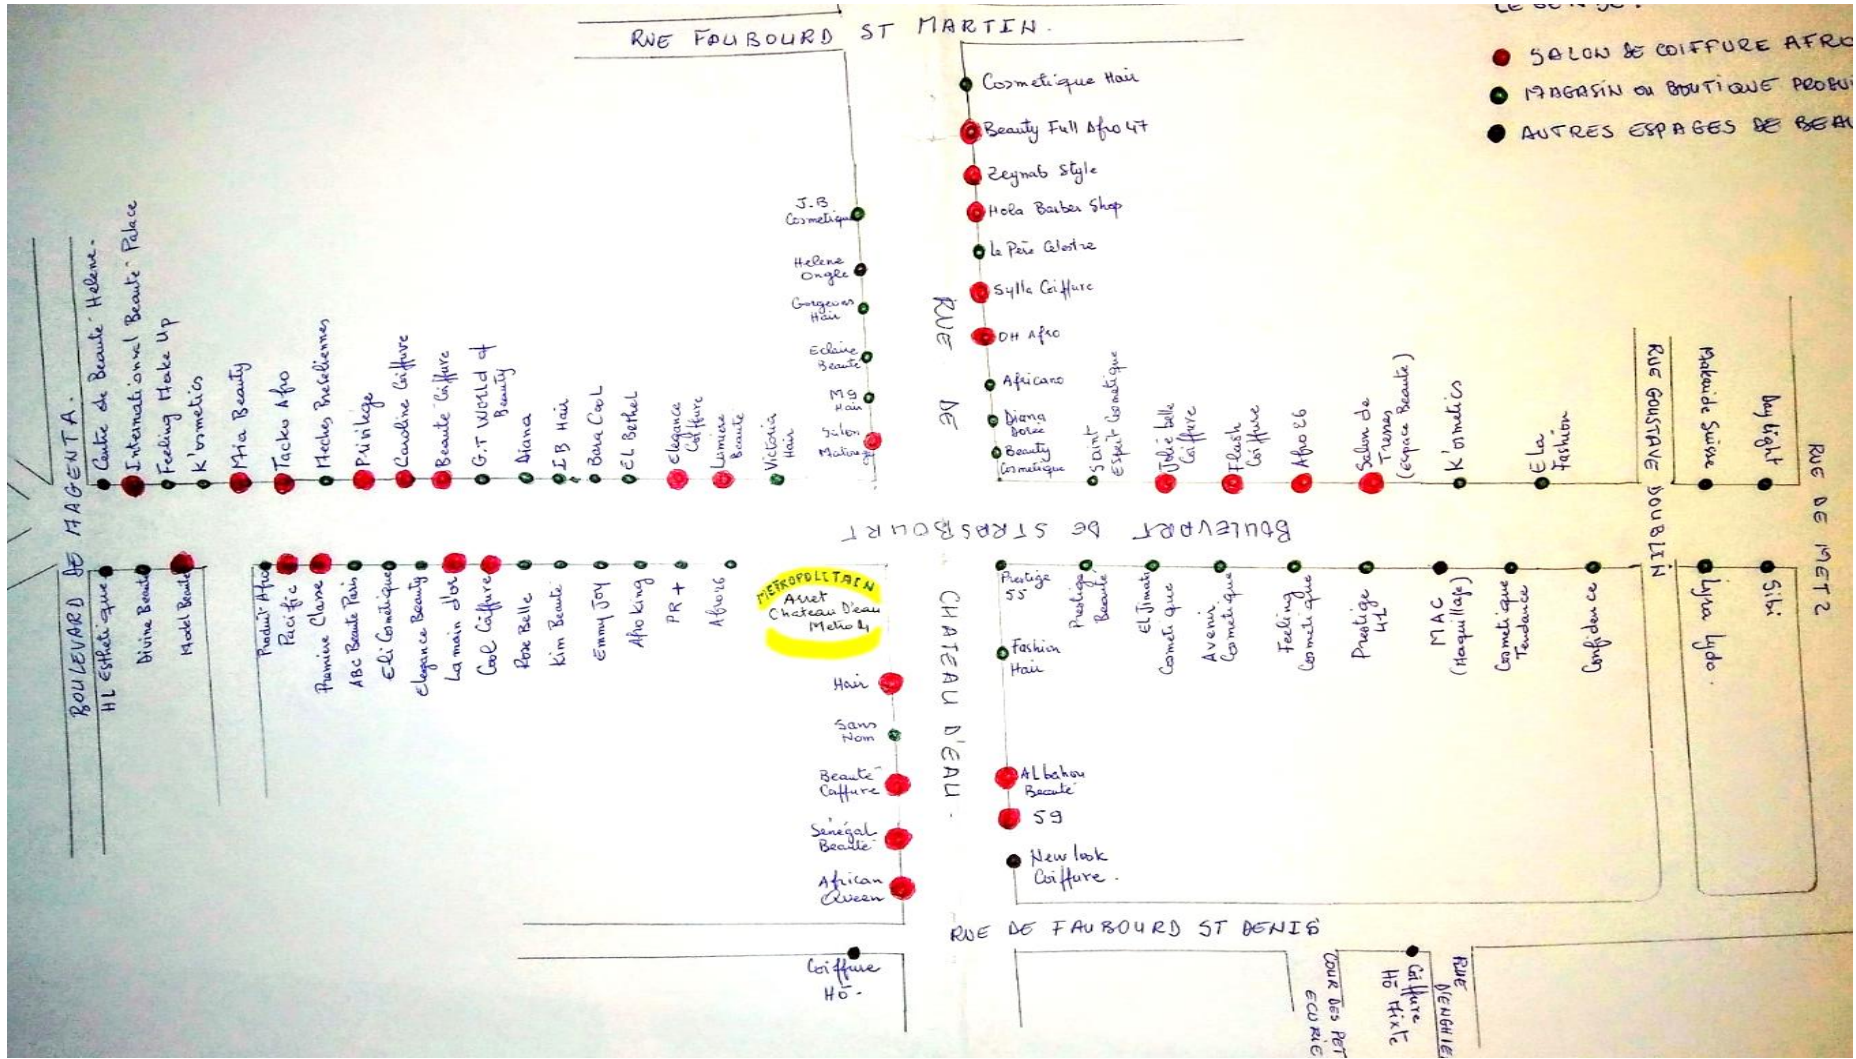 RUE FAUBOURD ST MARTIN.
LEGENDE:
SALON DE COIFFURE AFRO
MAGASIN OU BOUTIQUE PRODUI
AUTRES ESPACES DE BEAU
Cosmetique Hair
Beauty Full Afro 47
Zeynab Style
Hola Barber Shop
Le Père Celestre
Sylla Coiffure
OH Afro
Africano
Diana
Beauty
Cosmetique
J.B
Cosmetique
Helene
Ongle
Gorgeous
Hair
Eclaire
Beauté
MD
Hair
Salon
RUE DE
CHATEAU D'EAU.
BOULEVARD DE MAGENTA.
Centre de Beauté Helene.
International Beauté Palace
Feeling Make Up
K'osmetics
Mia Beauty
Tacko Afro
Meches Bresiliennes
Privilège
Caroline Coiffure
Beauté Coiffure
G.T World of
Beauty
Diana
I B Hair
Bana Cool
EL Bethel
Elegance
Coiffure
Lumiere
Beauté
Victoria
Hair
Saint
Esprit Cosmetique
Jolie belle
Coiffure
Flash
Coiffure
Afro 26
Salon de
Tresses
(Espace Beauté)
K'osmetics
Ela
Fashion
RUE GOUSTAVE DOUBLIN
Suisse
Day Light
RUE DE METZ
BOULEVART DE STRASBOURT
HL Esthetique
Divine Beauté
Model Beauté
Produit Afro
Pacific
Premiere Classe
ABC Beauté Paris
Eli Cosmetique
Elegance Beauty
La main d'or
Cool Coiffure
Rose Belle
Kim Beauté
Emmy Joy
Afro King
PR+
Afro 26
METROPOLITAIN
Arret
Chateau D'eau
Metro 4
Prestige
55
Prestige
Beauté
El Jimani
Cosmetique
Avenir
Cosmetique
Feeling
Cosmetique
Prestige
41
MAC
(Maquillage)
Cosmetique
Tendance
Confidence
Lyna Lydo.
Sibi
Hair
Sans
Nom
Beauté
Caffure
Sénégal
Beauté
African
Queen
Fashion
Hair
Albahou
Beauté
59
New look
Coiffure.
RUE DE FAUBOURD ST DENIS
Coiffure
HÔ-
COUR DES PET
ECURIE
Coiffure
Hô Mixte
RUE
D'ENGHIE